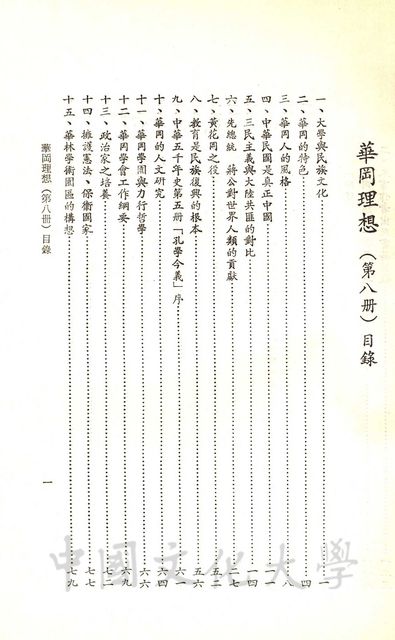 華岡理想（第八册）目錄
一、大學與民族文化………一
二、華岡的特色………四
三、華岡人的風格………八
四、中華民國是真正中國………一一
五、三民主義與大陸共區的對比………一四
六、先總統　蔣公對世界人類的貢獻………二七
七、黃花岡之役………五二
八、教育是民族復興的根本………五六
九、中華五千年史第五册「孔學今義」序………六一
十、華岡的人文研究………六四
十一、華岡學園與力行哲學………六六
十二、華岡學會工作綱要………六九
十三、政治家之培養………七二
十四、擁護憲法、保衞國家………七七
十五、華林學術園區的構想………七九
華岡理想（第八册）目錄
一
中國文化大學